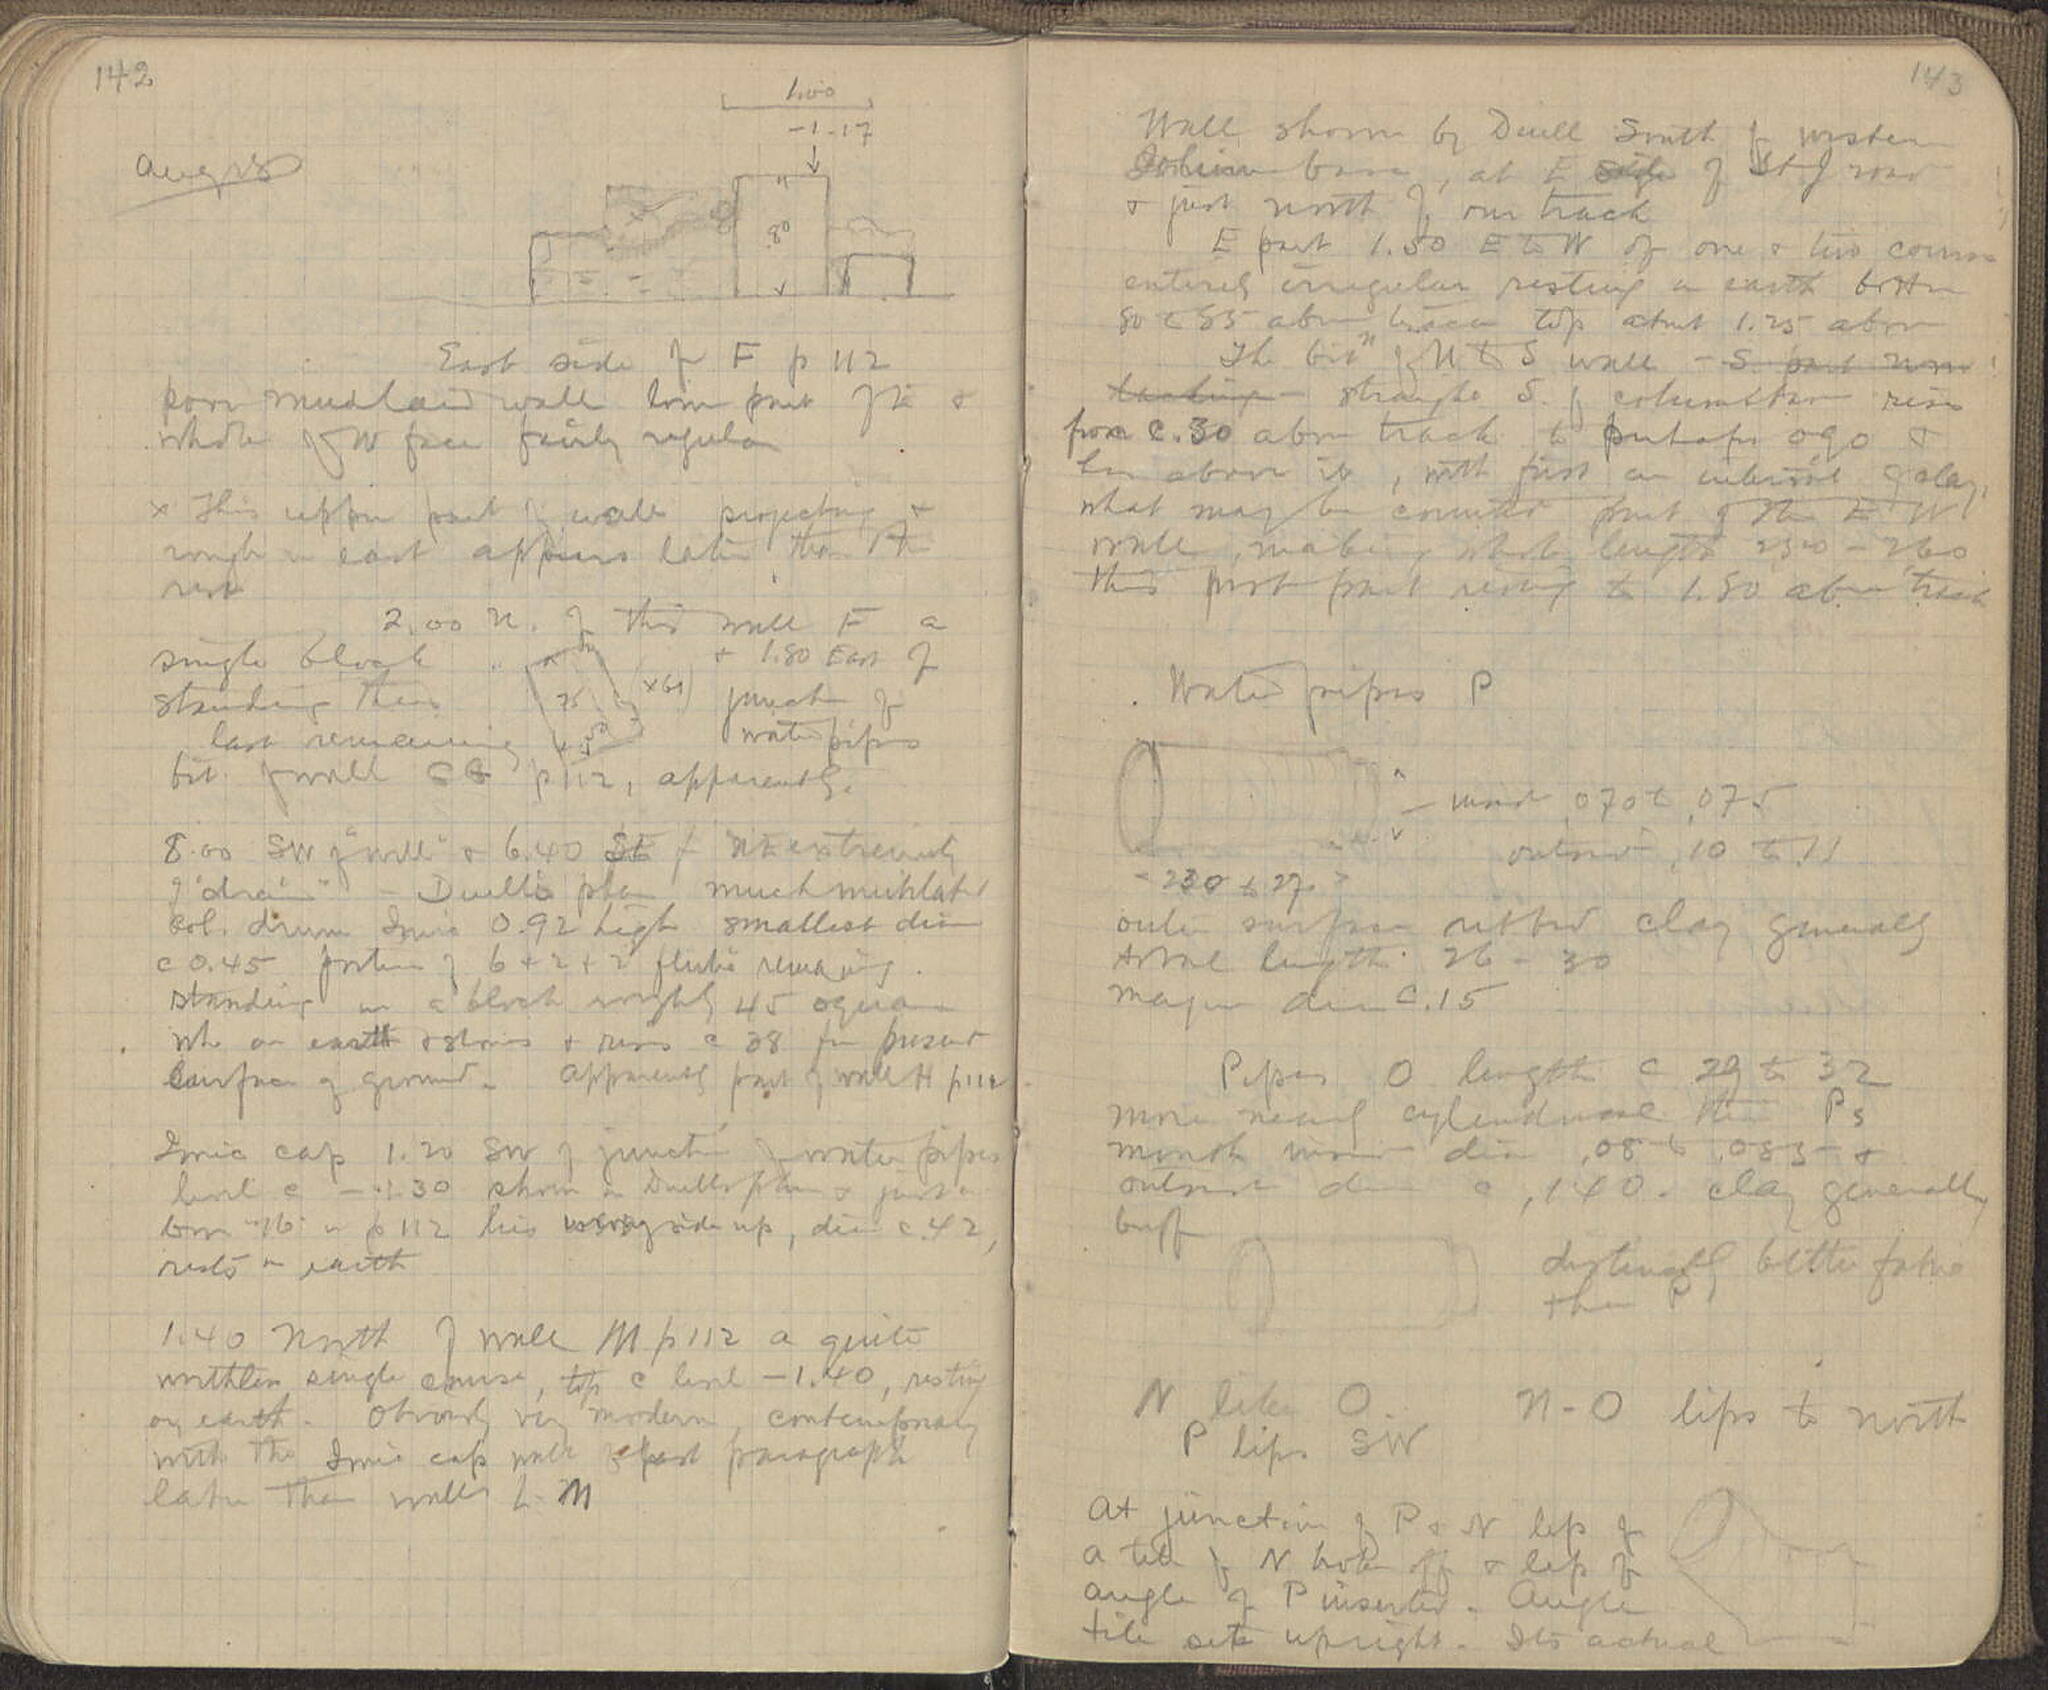 142
Aug 28
1.00
-1.17
.80
x
East side of F p 112
poor mudlaid wall lower part of it &
whole of W face fairly regular
x This upper part of wall projecting &
rough on east appears later than the
rest
2.00 N. of this wall F a
single block & 1.80 East of
standing there junction of
last remaining water pipes
75 (x61)
bit of wall CG p 112, apparently.
8.00 SW of "well" & 6.40 SE of NE extremity
of "drain" - Duell's plan much mutilated
col. drum Ionic 0.92 high smallest diam
c 0.45 portions of 6+2+2 flutes remaining.
standing on a block roughly 45 square
wh. on earth & stones & rises c 38 from present
surface of ground. Apparently part of wall H p 112
Ionic cap 1.20 SW of junction of water pipes
level c -1.30 shown on Duell's plan & just
below "16" on p 112 lies wrong side up, diam c .42,
rests on earth
1.40 North of wall M p 112 a quite
worthless single course, top c level -1.40, resting
on earth. Obviously very modern, contemporary
with the Ionic cap wall of past paragraph
later than walls L-M
143
Wall shown by Duell South of western
column base, at E side of St J road
& just north of our track
E part 1.50 E to W of one & two courses
entirely irregular resting on earth bottom
80 to 85 above track top about 1.25 above
The bit of N to S wall - S. part now
straight S. of column base rises
from c.30 above track to perhaps 090 &
above it, with first an interval of clay,
what may be counted part of the E W
wall, making whole length 250-260
this part rising to 1.80 above track
Water pipes P
inside .070 to .075
outside .10 to .11
230 to 27
outer surface ribbed clay generally
total length 26 - 30
major diam c.15
Pipes O length c 29 to 32
more nearly cylindrical than Ps
mouth inside diam .08 to .085 &
outside diam c .140. clay generally
buff
distinctly better fabric
than P
N like O N-O lips to north
P lips SW
At junction of P & N lip of
a tile of N broken off & lip of
angle of P inserted. Angle
tile sets upright. Its actual